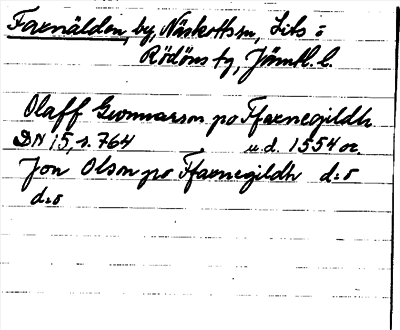 Faxnälden, by, Näskotts sn, Lits o
Rödöns tg, Jämtl. l.
Olaff Gunnarson po Ffaxnegildh
DN 15, s. 764 u.d. 1554 or.
Jon Olson po Ffaxnegildh d:o
d:o